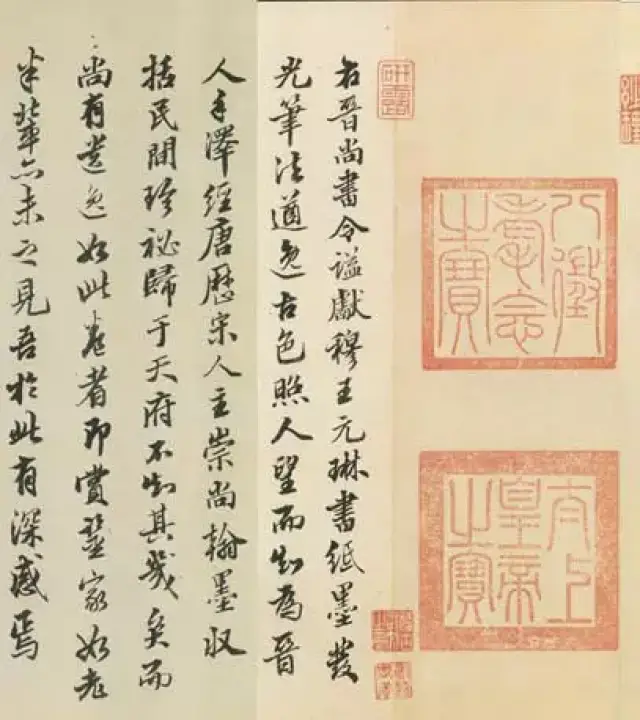 八徵耄念之寶
太上皇帝之寶
研露
右晉尚書令謚獻穆王元琳書紙墨發
光筆法遒逸古色照人望而知為晉
人手澤經唐歷宋人主崇尚翰墨収
括民間珍祕歸于天府不知其幾矣而
尚有遺逸如此卷者即賞鑒家如老
米輩亦未之見吾於此有深感焉